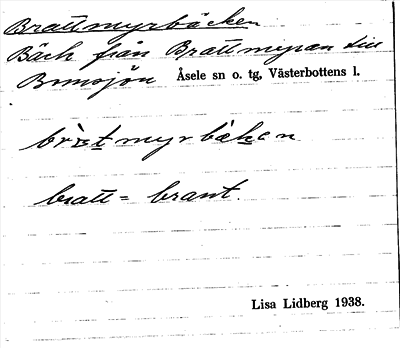 Brattmyrbäcken
Bäck från Brattmyran till
Bomsjön Åsele sn o. tg, Västerbottens l.
myrbäcken
bratt = brant.
Lisa Lidberg 1938.